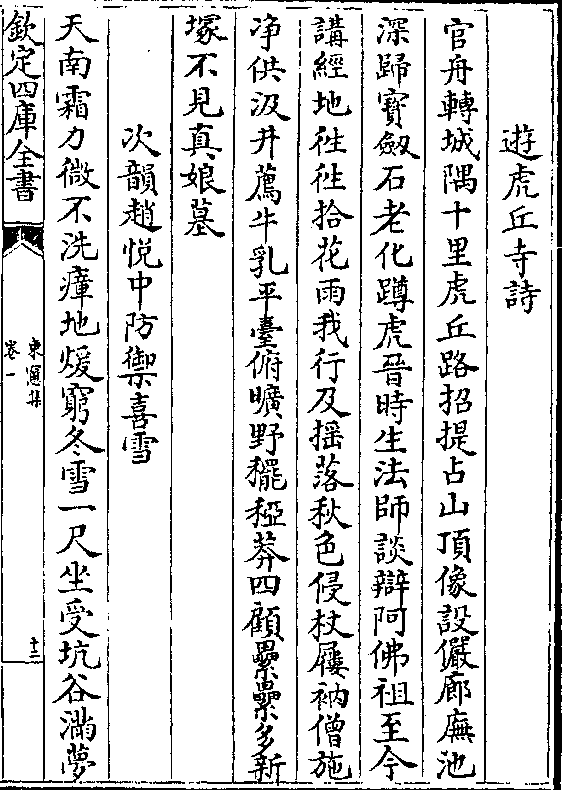 遊虎丘寺詩
官舟轉城隅十里虎丘路招提占山頂像設儼廊廡池
深歸寶劔石老化蹲虎晉時生法師談辯阿佛祖至今
講經地徃徃拾花雨我行及揺落秋色侵杖屨衲僧施
净供汲井薦牛乳平臺俯曠野䆉稏莽四顧纍纍多新
塚不見真娘墓
次韻趙悦中防禦喜雪
天南霜力微不洗瘴地煖窮冬雪一尺坐受坑谷滿夢
欽定四庫全書
東窻集
卷一
十二